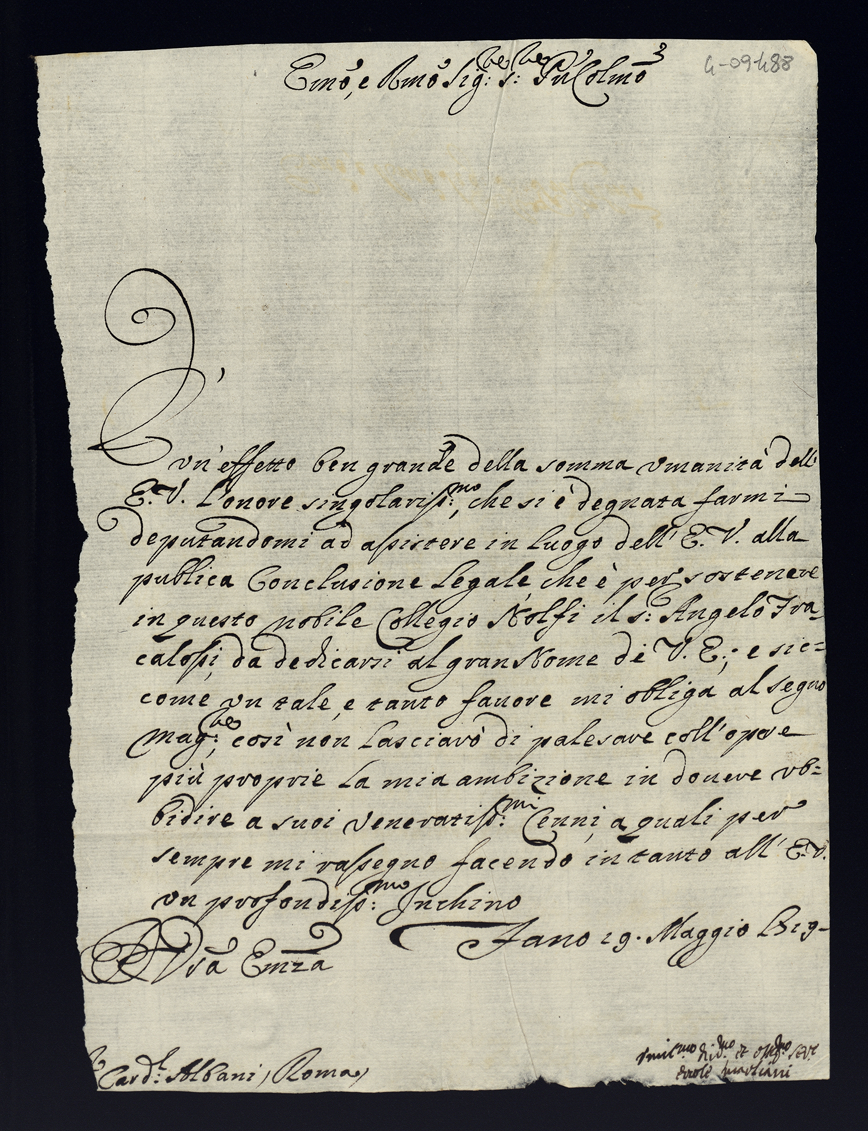 4-09-488
Emo, e Rmo Sig:re S:re Pn Colmo
È un'effetto ben grande della somma umanità dell'
E.V. l'onore singolariss:mo, che si è degnata farmi
deputandomi ad assistere in luogo dell'E.V. alla
publica Conclusione Legale che è per sostenere
in questo nobile Collegio Nolfi il S:r Angelo Fra-
calossi, da dedicarsi al gran Nome di V.E.; e sic=
come un tale, e tanto favore mi obliga al segno
mag:re, così non lasciarò di palesare coll'opere
più proprie la mia ambizione in dovere ub=
bidire a suoi veneratiss:mi Cenni, a quali per
sempre mi rassegno facendo in tanto all'E.V.
un profondiss:mo Inchino
Fano 19. Maggio
D V̄sa Emza
Card:l Albani, Roma,
Umil:mo di:mo et obb:mo serv